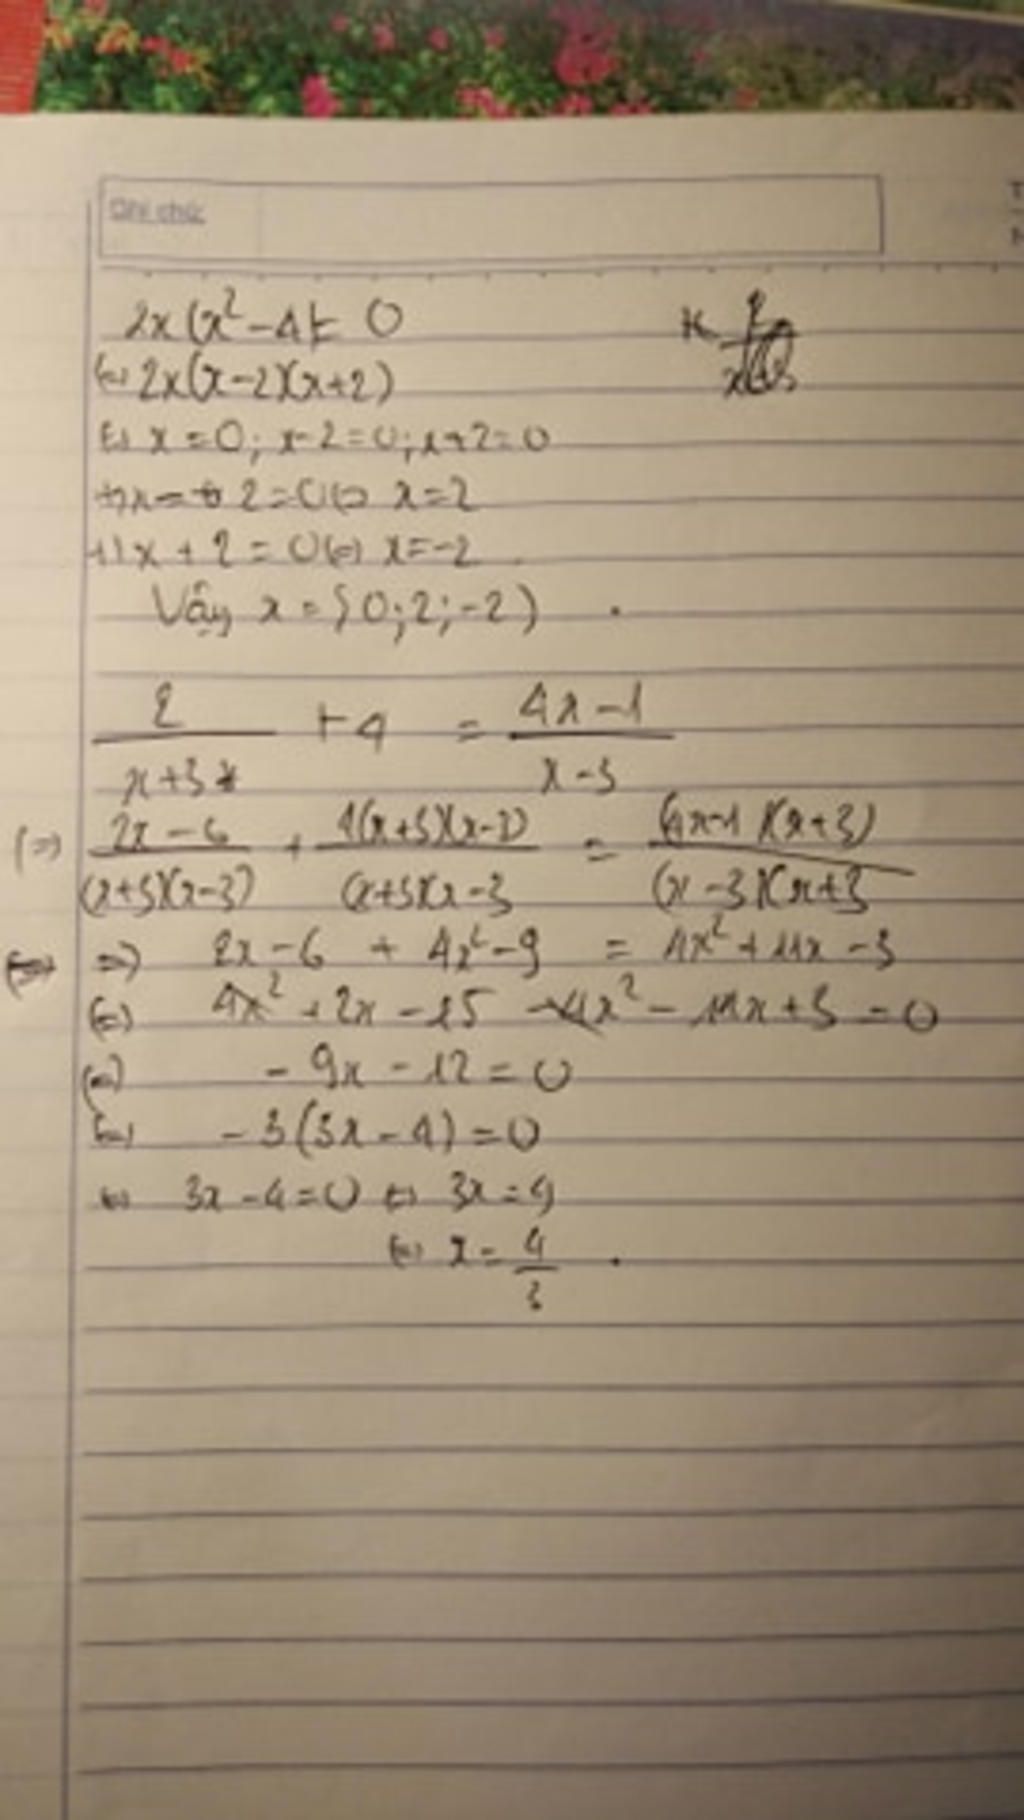 Ghi chú:
2x(x²-4)= 0
(=) 2x(x-2)(x+2)
(=) x=0; x-2=0; x+2=0
2=0 (=) x=2
+) x+2=0 (=) x=-2
Vậy x={0;2;-2}
2/(x+3) + 4 = (4x-1)/(x-3)
(=) (2x-6)/((x+3)(x-3)) + 4(x+3)(x-3)/((x+3)(x-3 = (4x-1)(x+3)/((x-3)(x+3
=) 2x-6 + 4x²-9 = 4x²+11x-3
(=) 4x²+2x-15 -4x²-11x+3=0
(=) -9x-12=0
(=) -3(3x-4)=0
(=) 3x-4=0 (=) 3x=4
(=) x=4/3.